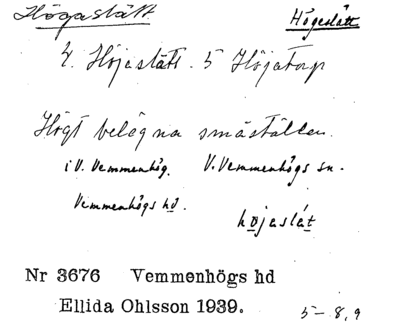 Högaslätt. Högeslätt
4. Höjaslätt. 5 Höjatorp
Högt belägna småställen.
i V. Vemmenhög. V. Vemmenhögs sn.
Vemmenhögs hd.
höjaslát
Nr 3676 Vemmenhögs hd
Ellida Ohlsson 1939. 5-8,9